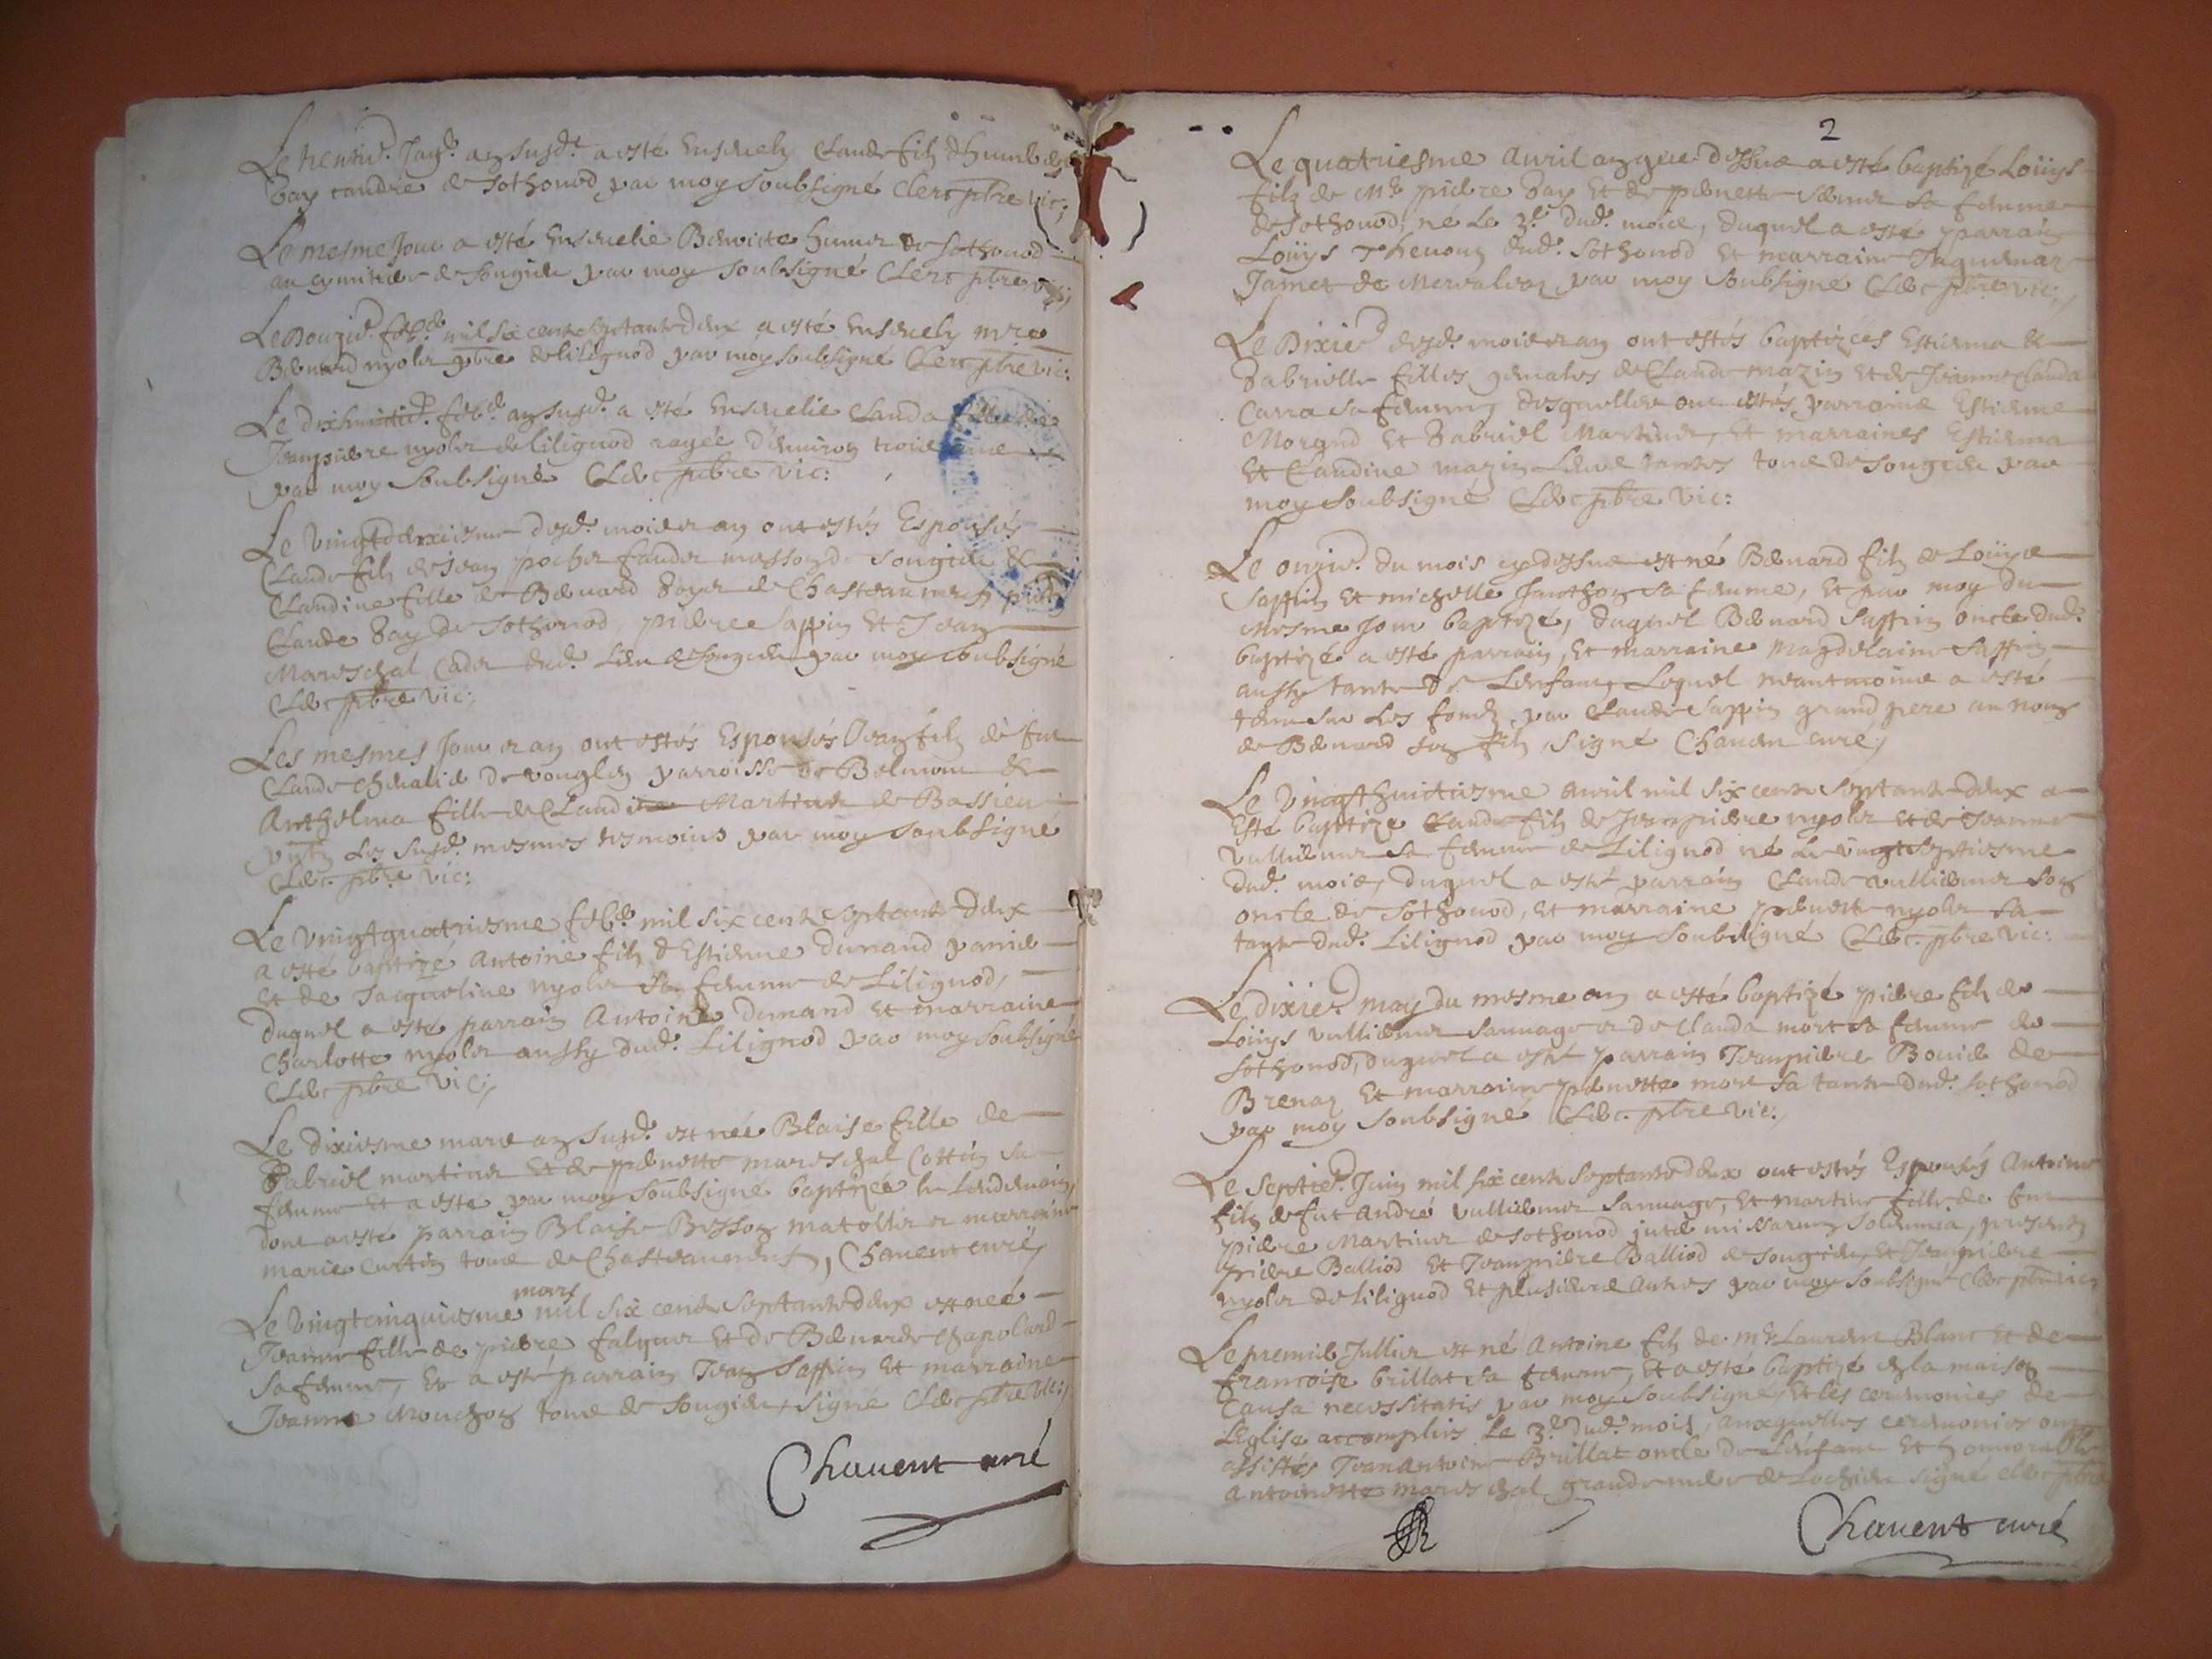 Le trentie. Jagr. an susd.t a esté ensevely Claude filz d'humbe
Gay candre de Sothonod par moy soubsigné Clerc pbre vic:
Le mesme jour a esté ensevelie Bernarde humer de Sothonod
au cymitiere de Songieu par moy soubsigné Clerc pbre vic:
Le Douzie. feb.er mil six cent septante deux a esté ensevely m.re
Bernard myolet pbre de lilignod par moy soubsigné Clerc pbre vic:
Le dixhuitie. feb.er an susd. a esté ensevelie Clauda fille de
Jeanpierre myolet de lilignod agée d'environ trois ans
par moy soubsigné Clerc pbre vic:
Le vingtdeuxiesme desd. mois et an ont estés Espousés
Claude filz de Jean pochet Songieu &
Claudine fille de Bernard Goyet de Chasteauneuf pntz
Claude Gay de Sothonod, pierre Sappin et Jean
Mareschal Cadet dud. lieu de Songieu par moy soubsigné
Clerc pbre vic:
Les mesmes jour et an ont estés Espousés Jean filz de fut
Claude chevalie de vouglen parroisse de Belmont &
Anthelma fille de Claudine Martinet de Bassieu
pntz les susd. mesmes tesmoins par moy soubsigné
Clerc pbre vic:
Le vingtquatriesme feb.er mil six cent septante deux
a esté baptizé Antoine filz d'Estienne Dunand
Et de Jacqueline myolet sa femme de Lilignod,
duquel a esté parrain Antoine Dunand et marraine
Charlotte myolet aussy dud. Lilignod par moy soubsigné
Clerc pbre vic:
Le dixiesme mars an susd. est née Blaise fille de
Gabriel martinet et de pernette mareschal Cottin sa
femme et a esté par moy soubsigné baptizée le lendemain,
dont a esté parrain Blaise Besson matollet et marraine
marie cottin tous de Chasteauneuf, Chavent curé,
mars
Le vingtcinquiesme mil six cent septante deux est née
Jeanne fille de pierre falquet Et de Bernarde chapolard
sa femme, Et a esté parrain Jean Sappin Et marraine
Jeanne Mouchon tous de Songieu, signé Clerc pbre vic:
Chavent curé
2
Le quatriesme Avril an que dessus a esté baptizé Loüys
filz de M.e pierre Gay Et de pernette sa femme
de Sothonod, né le 3.e dud. mois, duquel a esté parrain
Loüys Thevenin dud. Sothonod et marraine Jaquema
Jamet de Mervaleon par moy soubsigné Clerc pbre vic:
Le Dixie. desd. mois et an ont estés baptizées Estienna &
Gabrielle filles gemeles de Claude mazin et de Jeanne Clauda
Carra sa femme desquelles ont estés parrains Estienne
Morand Et Gabriel Martinet, Et marraines Estienna
Et Claudine mazin Leurs tantes tous de Songieu par
moy soubsigné Clerc pbre vic:
Le onzie. du mois cy dessus est né Bernard filz de Loüys
Sappin Et michelle Janthon sa femme, Et par moy du
mesme jour baptizé, duquel Bernard Sappin oncle dud.
baptizé a esté parrain, Et marraine magdelaine Sappin
aussy tante de L'enfant, Lequel neantmoins a esté
tenu sur Les fondz par Claude Sappin grand pere au nom
de Bernard son filz, signé Chavent curé,
Le vingthuictiesme Avril mil six cent septante deux a
Esté baptizé Claude filz de Jeanpierre myolet et de Jeanne
Vulliemet sa femme de Lilignod né Le vingtseptiesme
dud. mois, duquel a esté parrain Claude vulliemet son
oncle de Sothonod, et marraine pernette myolet sa
tante dud. Lilignod par moy soubsigné Clerc pbre vic:
Le dixie. may du mesme an a esté baptizé pierre filz de
Loüys vulliemet sauvage et de Clauda mort sa femme de
Sothonod, duquel a esté parrain Jeanpierre Bovie de
Brenaz Et marraine pernette mort sa tante dud. Sothonod
par moy soubsigné Clerc pbre vic:
Le Septie. Juin mil six cent septante deux ont estés Espousés Antoine
filz de fut André vulliemet sauvage, et martine fille de fut
pierre Martinet de Sothonod intra missarum solemnia, presents
pierre Balliod Et Jeanpierre Balliod de Songieu, et Jeanpierre
myolet de Lilignod Et plusieurs autres par moy soubsigné Clerc pbre vic:
Le premie Jullier est né Antoine filz de m.e Laurent Blanc et de
francoise brillat sa femme, Et a esté baptizé en la maison
Causa necessitatis par moy soubsigné, Et les ceremonies de
L'Eglise accomplies le 3.e dud. mois, auxquelles ceremonies ont
assistés Jean Antoine Brillat oncle de L'enfant Et honnorable
Antoinette mareschal grande mere de Lochieu signé Clerc pbre
Chavent curé